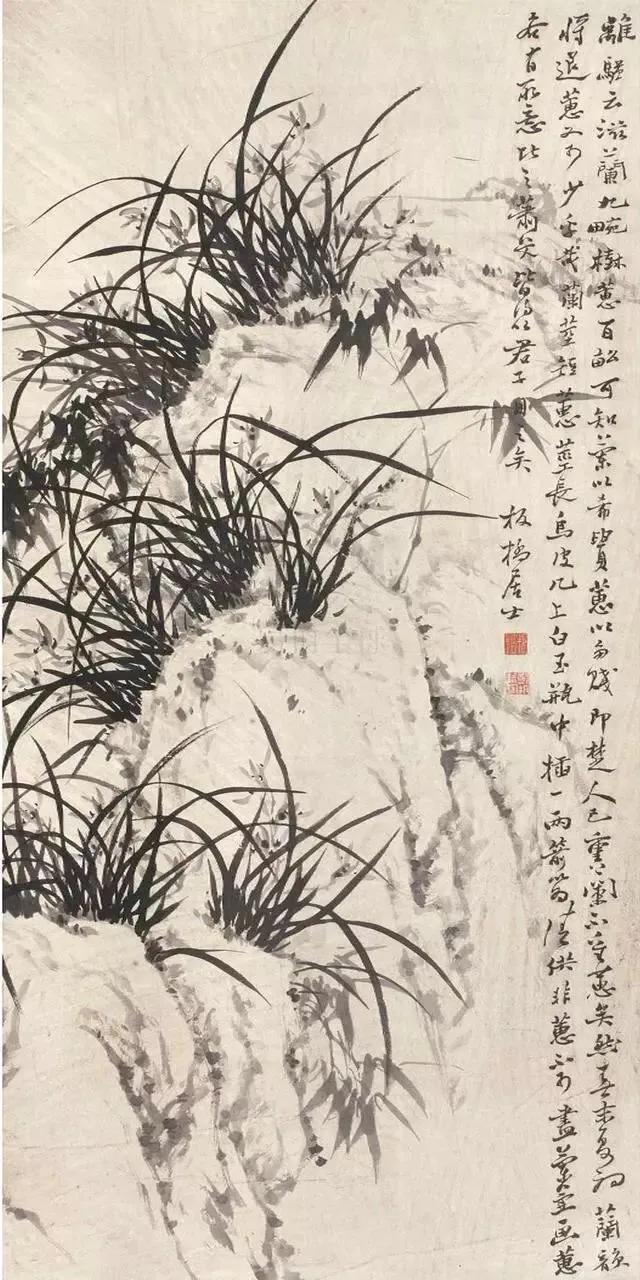 離騷云滋蘭九畹樹蕙百畝可知蘭以希貴蕙以多賤即楚人已重蘭不重蕙矣然春末夏初蘭韻
將退蕙又可少乎哉蘭莖短蕙莖長烏皮几上白玉瓶中插一兩箭為清供非蕙不可畫蘭画蕙
各有取意比之蕭艾皆得以君子目之矣
板橋居士